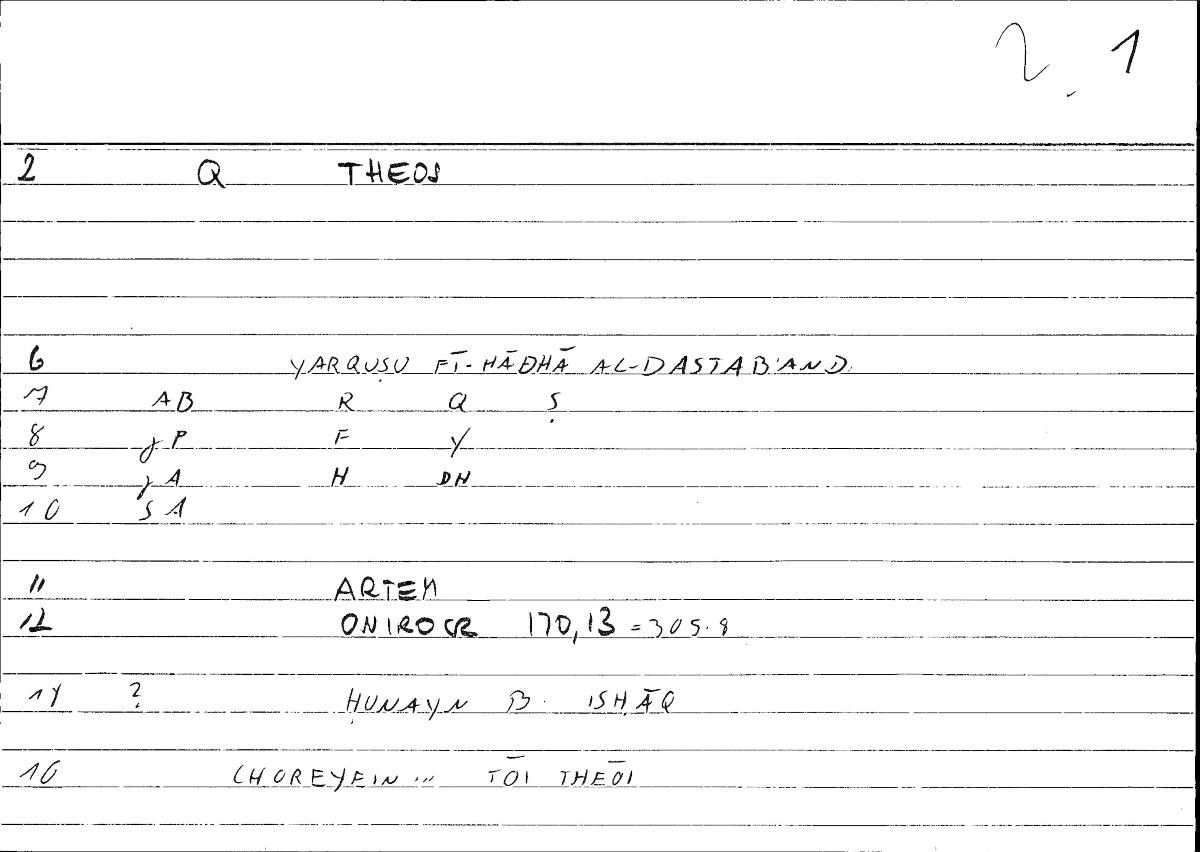 2. 1
2 Q THEOS
6 YARQUṢU FĪ-HĀDHĀ AL-DASTAB'AND.
7 AB R Q Ṣ
8 γP F Y
9 γA H DH
10 SA
11 ARTEM
12 ONIROCR 170,13 = 305.8
14 ? ḤUNAYN B. ISḤĀQ
16 CHOREYEIN ... TŌI THEŌI